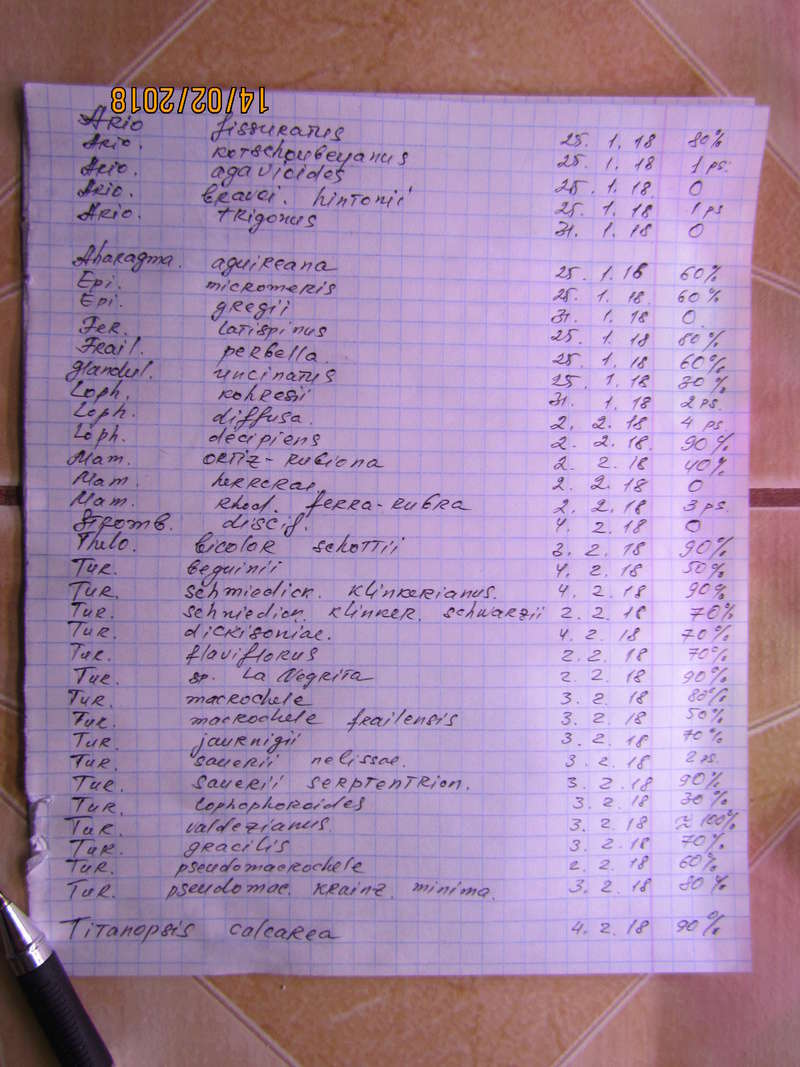 14/02/2018
Ario fissuratus 25. 1. 18 80%
Ario. kotschoubeyanus 25. 1. 18 1 ps.
Ario. agavioides 25. 1. 18 0
Ario. bravoi. hintonii 25. 1. 18 1 ps
Ario. trigonus 31. 1. 18 0
Abaragma. aguireana 25. 1. 18 60%
Epi. micromeris 25. 1. 18. 60%
Epi. gregii 31. 1. 18 0.
Fer. latispinus 25. 1. 18 80%
Frail. perbella. 25. 1. 18 60%
Glandul. uncinatus 25. 1. 18 30%
Loph. kohresii 31. 1. 18 2 ps.
Loph. diffusa. 2. 2. 18 4 ps.
Loph. decipiens 2. 2. 18. 90%
Mam. ortiz-rubiona 2. 2. 18 40%
Mam. herrerae 2. 2. 18 0
Mam. rhod. ferra-rubra 2. 2. 18 3 ps.
Stromb. discif. 4. 2. 18 0
Thelo. bicolor schottii 3. 2. 18 90%
Tur. beguinii 4. 2. 18 50%
Tur. schmiedick. klinkerianus. 4. 2. 18 90%
Tur. schmiedick. klinker. schwarzii 2. 2. 18 70%
Tur. dickisoniae. 4. 2. 18 70%
Tur. flaviflorus 2. 2. 18 70%
Tur. sp. La Negrita 2. 2. 18 90%
Tur. macrochele 3. 2. 18 80%
Tur. macrochele frailensis 3. 2. 18 50%
Tur. jaurnigii 3. 2. 18 70%
Tur. sauerii nelissae. 3. 2. 18 2 ps.
Tur. sauerii serptentrion. 3. 2. 18 90%
Tur. lophophoroides 3. 2. 18 30%
Tur. valdezianus. 3. 2. 18 ≈ 100%
Tur. gracilis 3. 2. 18 70%
Tur. pseudomacrochele 2. 2. 18 60%
Tur. pseudomac. krainz. minima. 3. 2. 18 80%
Titanopsis calcarea 4. 2. 18 90%